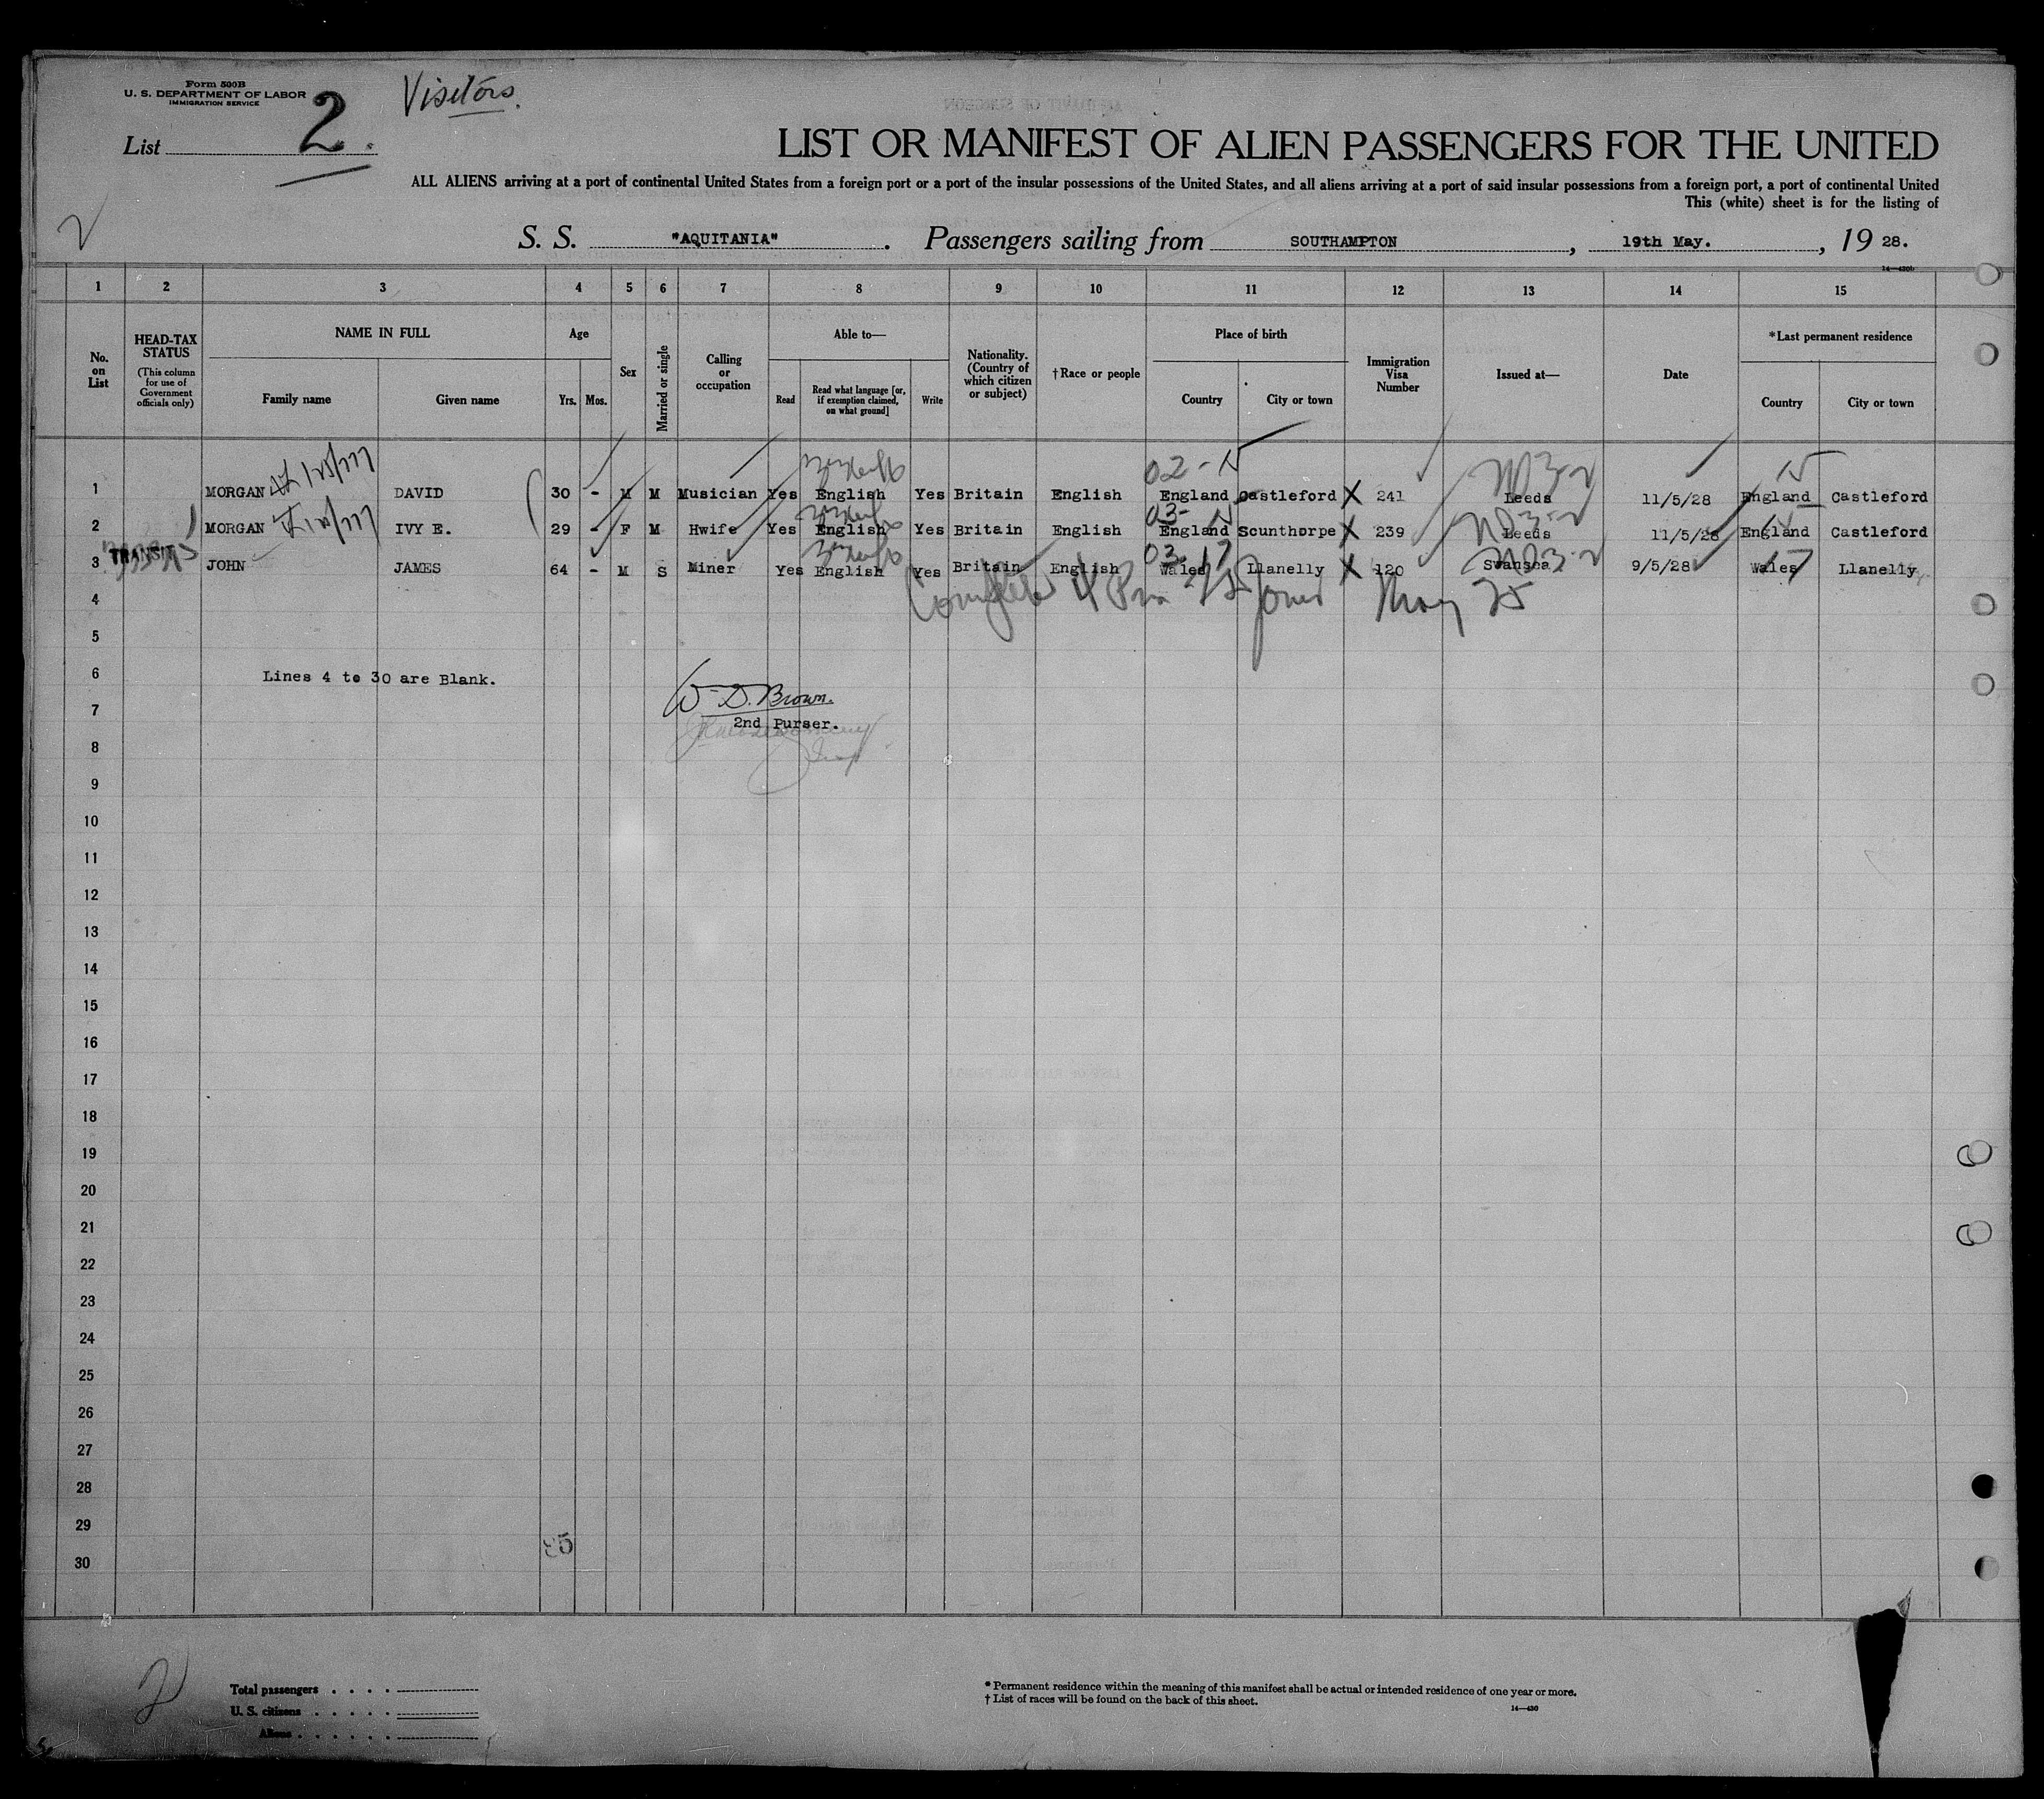 Form 500B
U. S. DEPARTMENT OF LABOR
IMMIGRATION SERVICE
Visitors.
List 2.
LIST OR MANIFEST OF ALIEN PASSENGERS FOR THE UNITED
ALL ALIENS arriving at a port of continental United States from a foreign port or a port of the insular possessions of the United States, and all aliens arriving at a port of said insular possessions from a foreign port, a port of continental United
This (white) sheet is for the listing of
S. S. "AQUITANIA". Passengers sailing from SOUTHAMPTON, 19th May., 19 28.
14—430b
1 2 3 4 5 6 7 8 9 10 11 12 13 14 15
No. on List HEAD-TAX STATUS (This column for use of Government officials only) NAME IN FULL Family name Given name Age Yrs. Mos. Sex Married or single Calling or occupation Able to— Read Read what language [or, if exemption claimed, on what ground] Write Nationality. (Country of which citizen or subject) †Race or people Place of birth Country City or town Immigration Visa Number Issued at— Date *Last permanent residence Country City or town
02-
1 MORGAN DAVID 30 - M M Musician Yes English Yes Britain English England Castleford X 241 Leeds 11/5/28 England Castleford
03-
2 MORGAN IVY E. 29 - F M Hwife Yes English Yes Britain English England Scunthorpe X 239 Leeds 11/5/28 England Castleford
TRANSIT
03-17
3 JOHN JAMES 64 - M S Miner Yes English Yes Britain English Wales Llanelly X 120 Swansea 9/5/28 Wales Llanelly
4 May 25
5
6 Lines 4 to 30 are Blank.
W D. Brown.
7 2nd Purser.
8
9
10
11
12
13
14
15
16
17
18
19
20
21
22
23
24
25
26
27
28
29
30
Total passengers
U. S. citizens
Aliens
2
* Permanent residence within the meaning of this manifest shall be actual or intended residence of one year or more.
† List of races will be found on the back of this sheet.
14—430